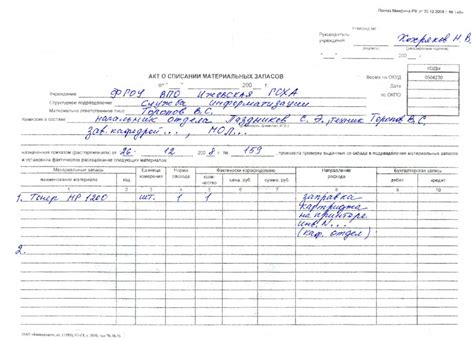 Утверждаю
Руководитель учреждения Хохряков Н.В.
КОДЫ
АКТ О СПИСАНИИ МАТЕРИАЛЬНЫХ ЗАПАСОВ
Форма по ОКУД 0504230
от " " 200 г.
Дата
Учреждение ФГОУ ВПО Ижевская ГСХА
по ОКПО
Структурное подразделение Служба Информатизации
Материально ответственное лицо Торопов В.С.
Комиссия в составе начальник отдела Поздников С. Э., техник Торопов В.С,
зав. кафедрой..., МОЛ...
назначенная приказом (распоряжением) от 26 12 200 8. № 159 произвела проверку выданных со склада в подразделения материальных запасов
и установила фактическое расходование следующих материалов:
Материальные запасы
Единица измерения
Норма расхода
Фактически израсходовано
Направление расхода
Бухгалтерская запись
наименование материала
код
количество
цена, руб.
сумма, руб.
дебет
кредит
1 2 3 4 5 6 7 8 9 10
1. Тонер HP 1200 шт. 1 1 заправка
картриджа
на принтере
инв. N...
(каф. отдел)
2.